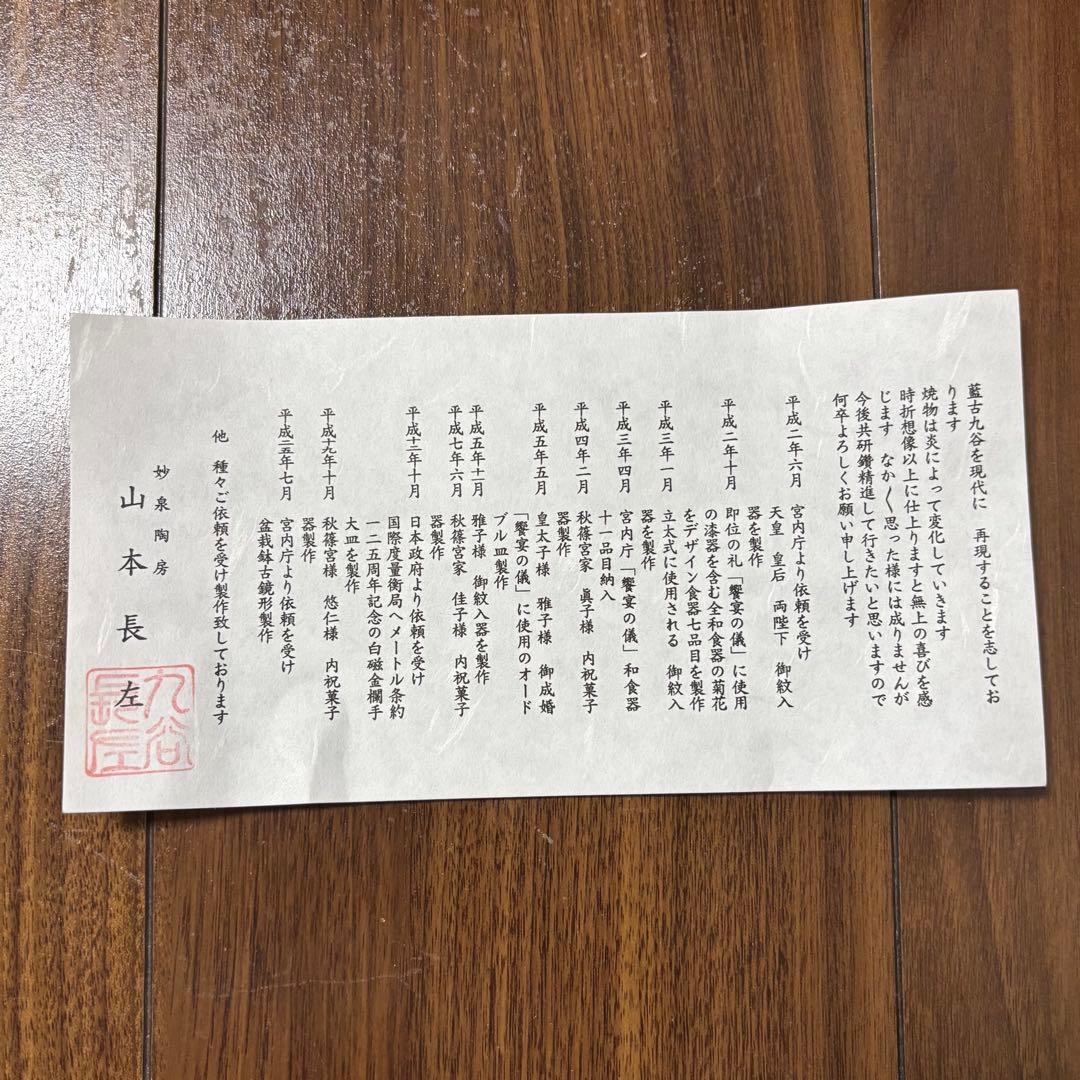 藍古九谷を現代に 再現することを志してお
ります
焼物は炎によって変化していきます
時折想像以上に仕上りますと無上の喜びを感
じます なか〱思った様には成りませんが
今後共研鑽精進して行きたいと思いますので
何卒よろしくお願い申し上げます
平成二年六月 宮内庁より依頼を受け
天皇 皇后 両陛下 御紋入
器を製作
平成二年十月 即位の礼「饗宴の儀」に使用
の漆器を含む全和食器の菊花
をデザイン食器七品目を製作
平成三年一月 立太式に使用される 御紋入
器を製作
平成三年四月 宮内庁「饗宴の儀」和食器
十一品目納入
平成四年二月 秋篠宮家 眞子様 内祝菓子
器製作
平成五年五月 皇太子様 雅子様 御成婚
「饗宴の儀」に使用のオード
ブル皿製作
平成五年十一月 雅子様 御紋入器を製作
平成七年六月 秋篠宮家 佳子様 内祝菓子
器製作
平成十二年十月 日本政府より依頼を受け
国際度量衡局へメートル条約
一二五周年記念の白磁金襴手
大皿を製作
平成十九年十月 秋篠宮様 悠仁様 内祝菓子
器製作
平成二五年七月 宮内庁より依頼を受け
盆栽鉢古鏡形製作
他 種々ご依頼を受け製作致しております
妙泉陶房
山本長左
九谷
長左